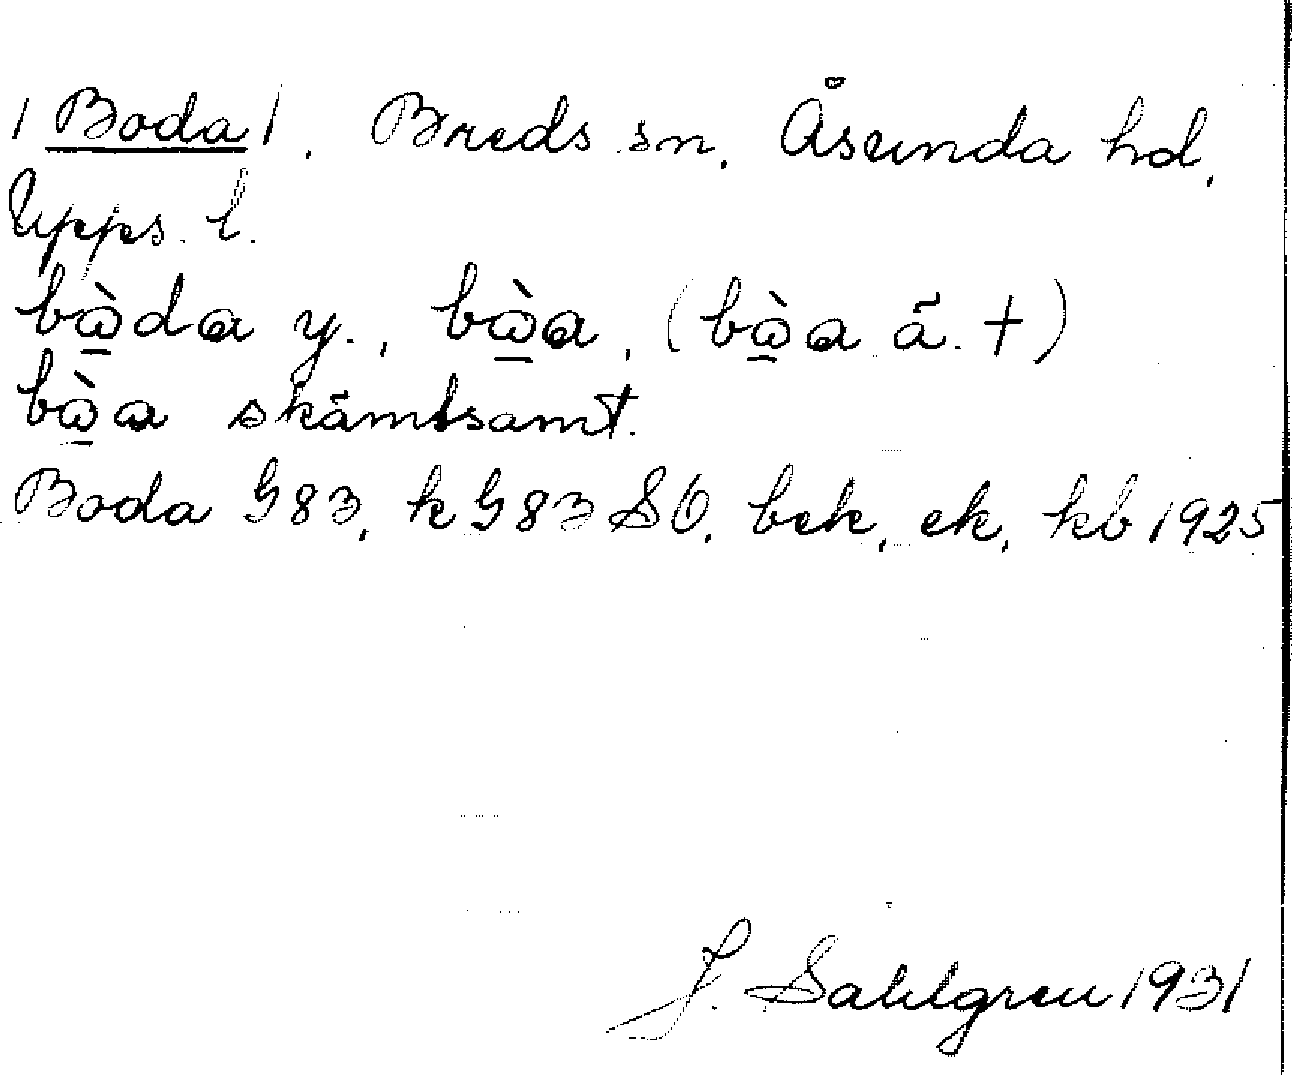 / Boda /. Breds sn. Åsunda hd,
Upps. l.
bὼ̲da y., bὼ̲a, (bὼ̲a ä. +)
bὼ̲a skämtsamt.
Boda G83, k G83 SO, bek, ek, kb 1925
J. Sahlgren 1931